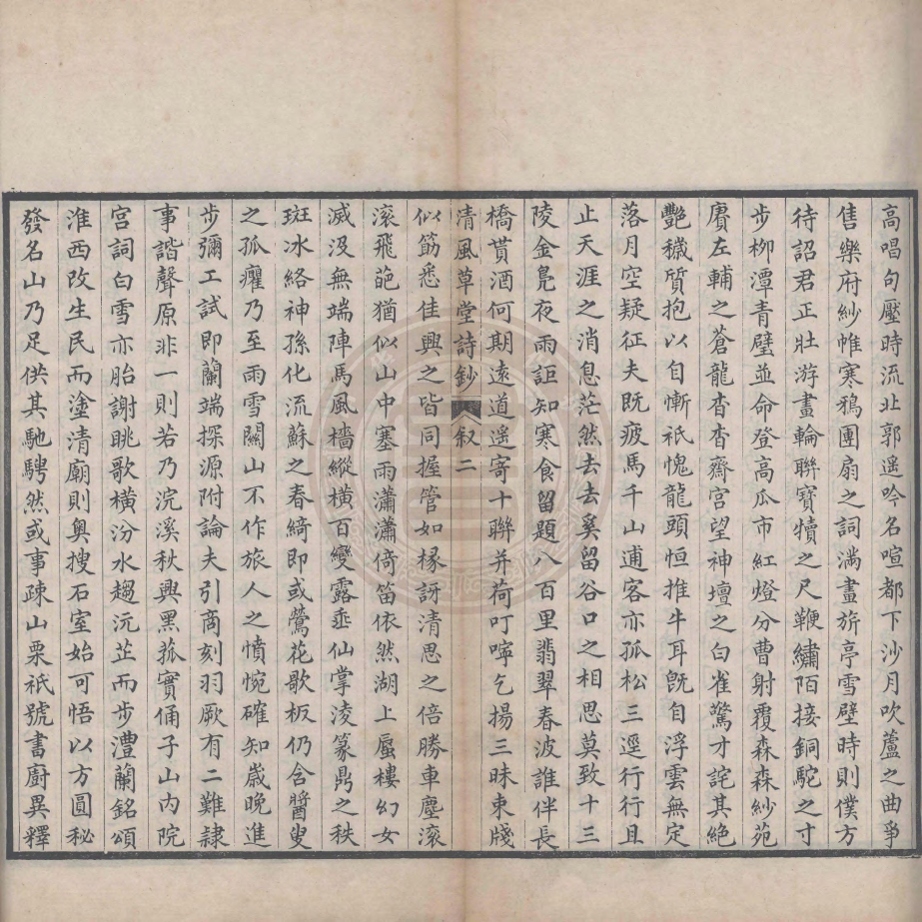 高唱句壓時流北郭遥吟名喧都下沙月吹蘆之曲爭
售樂府紗帷寒鴉團扇之詞滿畫旂亭雪壁時則僕方
待詔君正壯游畫輪聯寶犢之尺鞭繡陌接銅駝之寸
步栁潭青甓並命登高瓜市紅燈分曹射覆森森紗苑
賡左輔之蒼龍杳杳齋宫望神壇之白雀驚才詫其絶
艷穢質抱以自慚祇愧龍頭恒推牛耳旣自浮雲無定
落月空疑征夫旣疲馬千山逋客亦孤松三逕行行且
止天涯之消息茫然去去奚留谷口之相思莫致十三
陵金鳧夜雨詎知寒食留題八百里翡翠春波誰伴長
橋貰酒何期遠道遥寄十聯并荷叮嚀乞揚三昧柬牋
清風草堂詩鈔 叙 二
似箭悉佳興之皆同握管如椽訝清思之倍勝車塵滚
滚飛葩猶似山中塞雨瀟瀟倚笛依然湖上蜃樓幻女
滅沒無端陣馬風檣縱横百變露垂仙掌淩篆鼎之秩
斑冰絡神孫化流蘇之春綺即或鶯花歌板仍含醬叟
之孤癯乃至雨雪關山不作旅人之憤惋確知嵗晚進
步彌工試即蘭端探源附論夫引商刻羽厥有二難隷
事諧聲原非一則若乃浣溪秋興黑菰實俑子山内院
宫詞白雪亦胎謝眺歌横汾水趨沅芷而步澧蘭銘頌
淮西改生民而塗清廟則奥搜石室始可悟以方圓秘
發名山乃足供其馳騁然或事疎山栗祇號書廚異釋